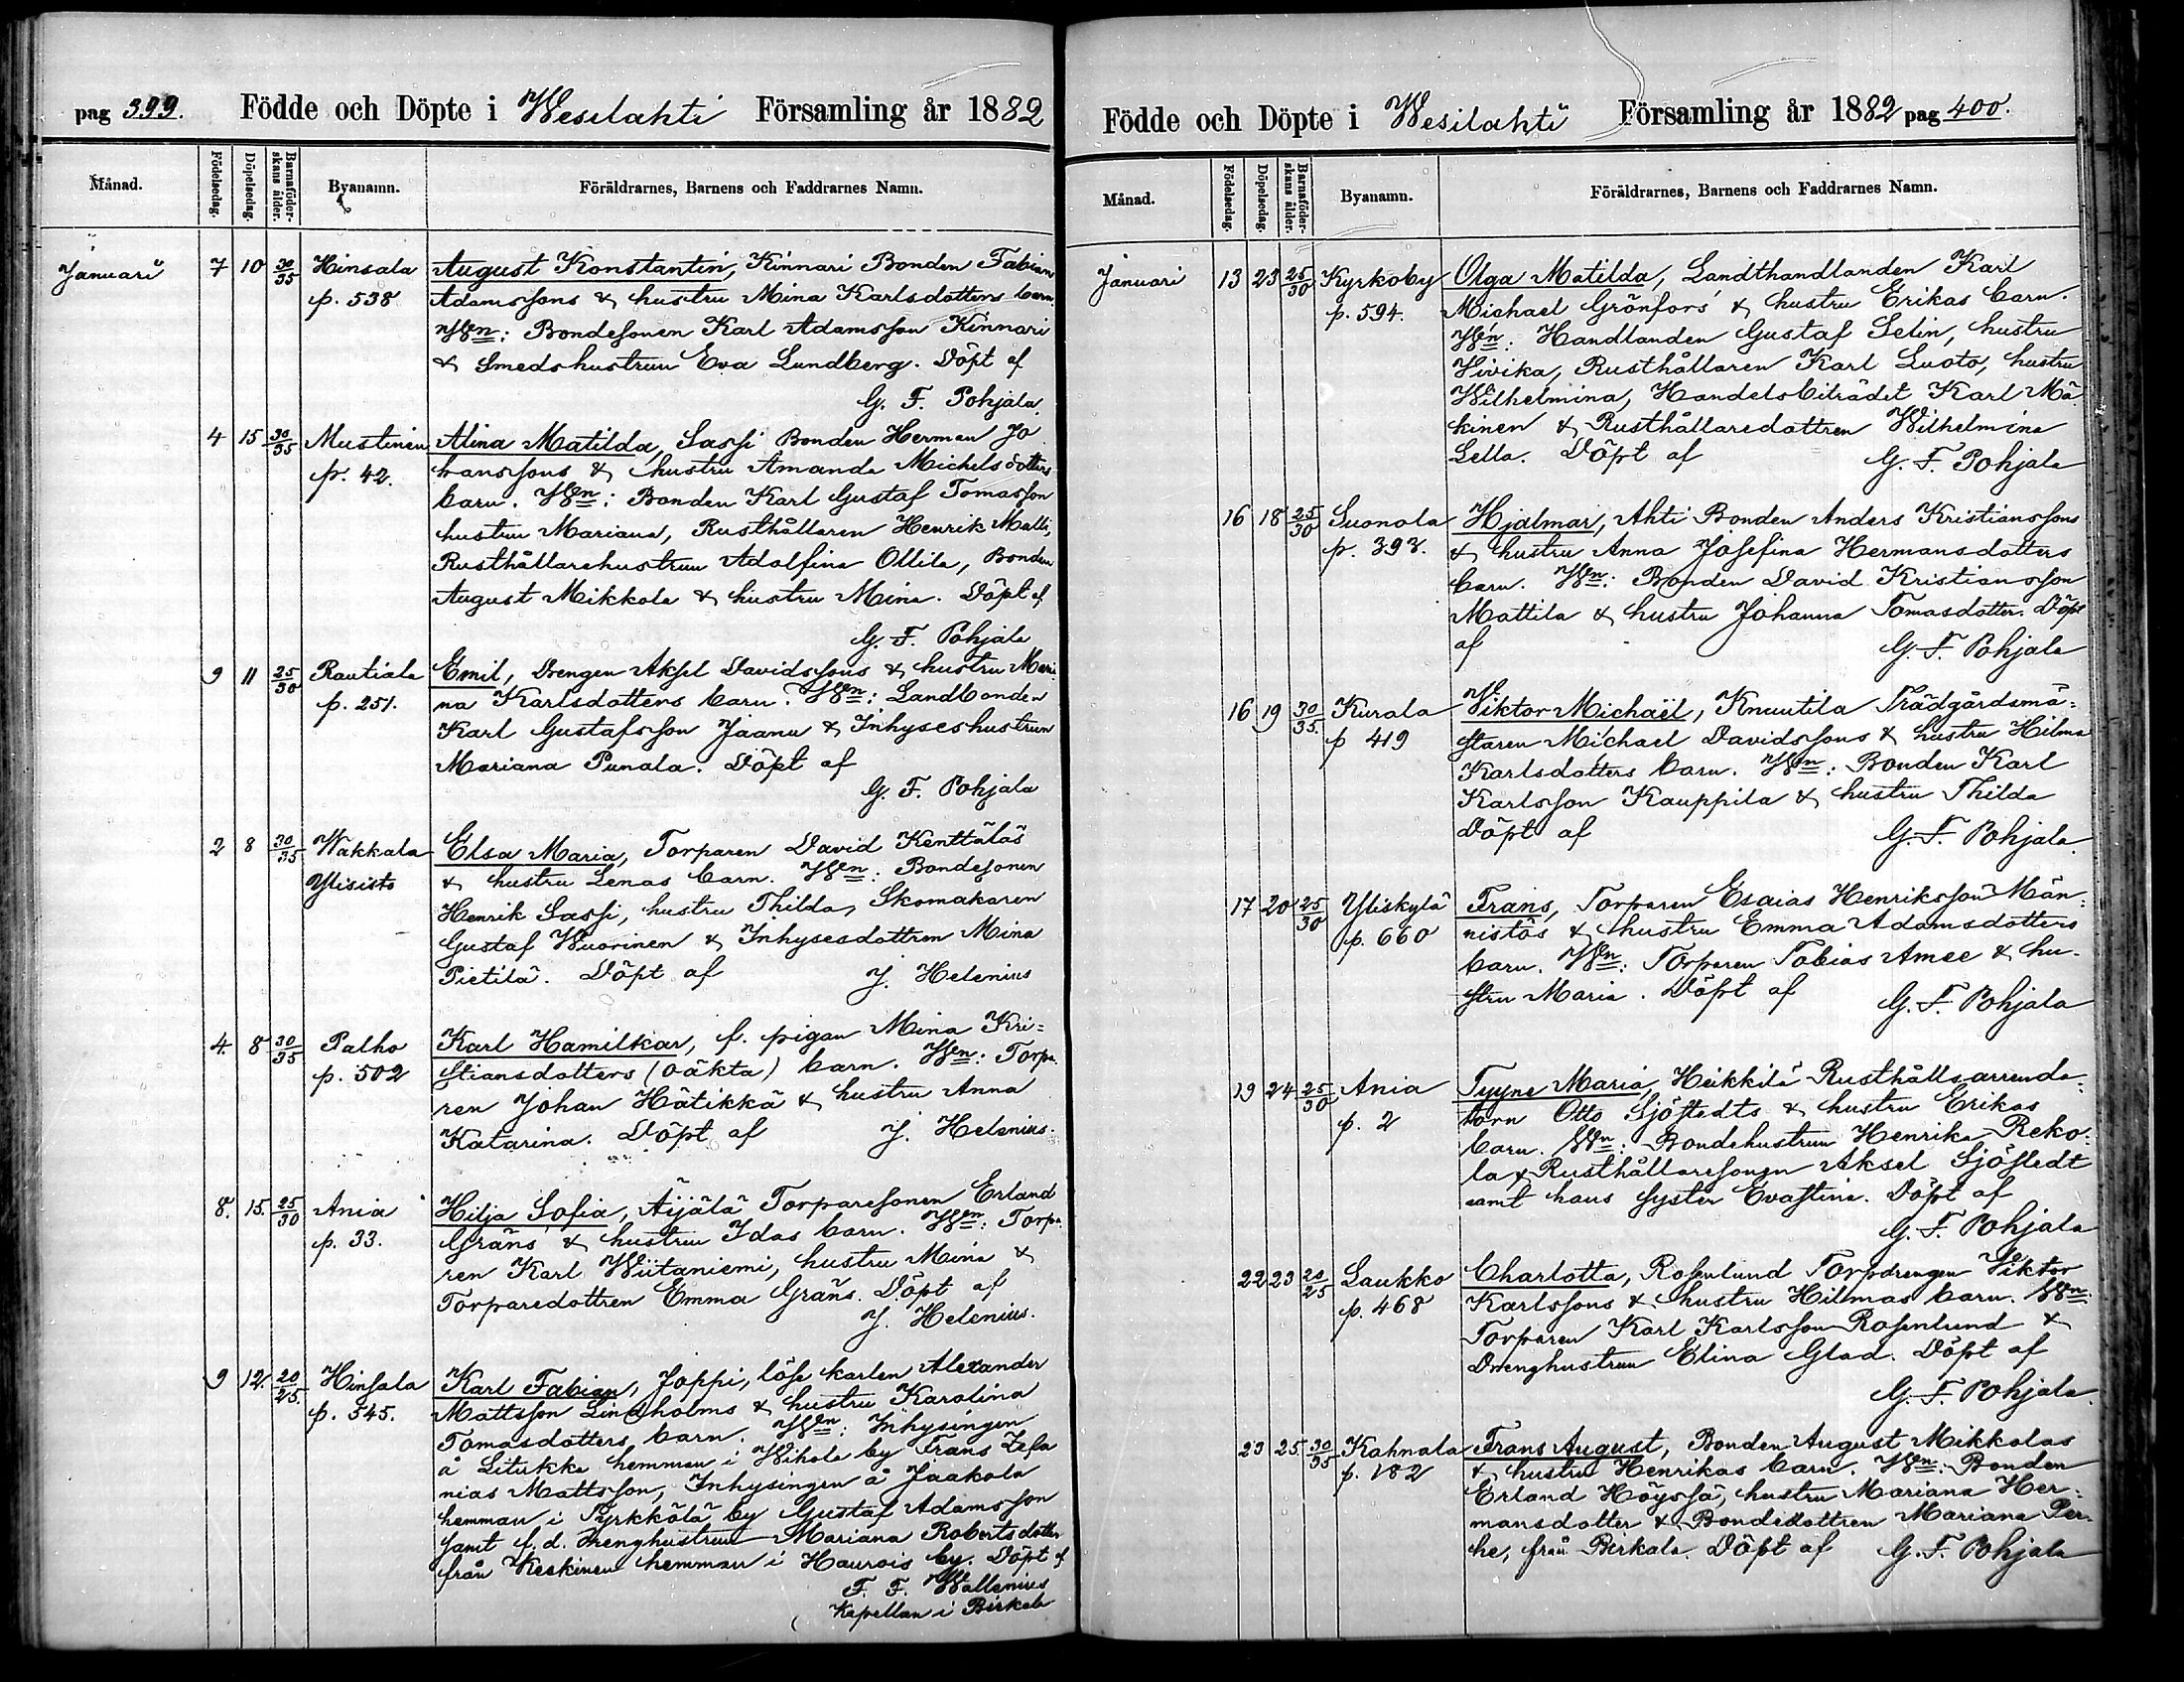 pag 399. Födde och Döpte i Wesilahti Församling år 1882
Månad. Födelsedag. Döpelsedag. Barnaföderskans ålder. Byanamn. Föräldrarnes, Barnens och Faddrarnes Namn.
Januari 7 10 30/35 Hinsala August Konstantin, Kinnari Bonden Fabian
p. 538 Adamssons & hustru Mina Karlsdotters barn.
Wn: Bondesonen Karl Adamsson Kinnari
& Smedshustrun Eva Lundberg. Döpt af
G. F. Pohjala.
4 15 30/35 Mustinen Alina Matilda, Sassi Bonden Herman Jo
p. 42. hanssons & hustru Amanda Michelsdotters
barn. Wn: Bonden Karl Gustaf Tomasson
hustru Mariana, Rusthållaren Henrik Malli,
Rusthållarehustrun Adolfina Ollila, Bonden
August Mikkola & hustru Mina. Döpt af
G. F. Pohjala
9 11 25/30 Rautiala Emil, Drengen Aksel Davidssons & hustru Maria
p. 251. na Karlsdotters barn. Wn: Landbonden
Karl Gustafsson Jaanu & Inhyseshustrun
Mariana Punala. Döpt af
G. F. Pohjala
2 8 30/35 Wakkala Elsa Maria, Torparen David Kenttäläs
Ylisisto & hustru Lenas barn. Wn: Bondesonen
Henrik Sassi, hustru Thilda, Skomakaren
Gustaf Wuorinen & Inhysesdottren Mina
Pietilä. Döpt af J. Helenius
4. 8 30/35 Palho Karl Hamilkar, f. pigan Mina Kri=
p. 502 stiansdotters (oäkta) barn. Wn: Torpa
ren Johan Hätikkä & hustru Anna
Katarina. Döpt af J. Helenius.
8. 15. 25/30 Ania Hilja Sofia, Äijälä Torparesonen Erland
p. 33. Gräns & hustru Idas barn. Wn: Torpa
ren Karl Wiitaniemi, hustru Mina &
Torparedottren Emma Gräns. Döpt af
J. Helenius.
9 12. 20/25. Hinsala Karl Fabian, Joppi, löse karlen Alexander
p. 545. Mattsson Lindholms & hustru Karolina
Tomasdotters barn. Wn: Inhysingen
å Litukka hemman i Wihola by Frans Zefa
nias Mattsson, Inhysingen å Jaakola
hemman i Pyrkkölä by Gustaf Adamsson
samt f.d. Drenghustrun Mariana Robertsdotter
från Keskinen hemman i Haurois by. Döpt af
F. F. Wallenius
Kapellan i Birkala
Födde och Döpte i Wesilahti Församling år 1882 pag 400.
Månad. Födelsedag. Döpelsedag. Barnaföderskans ålder. Byanamn. Föräldrarnes, Barnens och Faddrarnes Namn.
Januari 13 23 25/30 Kyrkoby Olga Matilda, Landthandlanden Karl
p. 594. Michael Grönfors' & hustru Erikas barn.
Wn: Handlanden Gustaf Selin, hustru
Wivika, Rusthållaren Karl Luoto, hustru
Wilhelmina, Handelsbiträdet Karl Mä
kinen & Rusthållaredottren Wilhelmina
Lella. Döpt af G. F. Pohjala
16 18 25/30 Suonola Hjalmar, Ahti Bonden Anders Kristianssons
p. 393. & hustru Anna Josefina Hermansdotters
barn. Wn: Bonden David Kristiansson
Mattila & hustru Johanna Tomasdotter. Döpt
af G. F. Pohjala
16 19 30/35. Kurala Wiktor Michaël, Knuutila Trädgårdsmä=
p 419 staren Michael Davidssons & hustru Hilma
Karlsdotters barn. Wn: Bonden Karl
Karlsson Kauppila & hustru Thilda
Döpt af G. F. Pohjala.
17 20 25/30 Yliskylä Frans, Torparen Esaias Henriksson Män=
p. 660 nistös & hustru Emma Adamsdotters
barn. Wn: Torparen Tobias Amee & hu-
stru Maria. Döpt af G. F. Pohjala
19 24 25/30 Ania Tyyne Maria, Heikkilä Rusthållsarrenda=
p. 2 torn Otto Sjöstedts & hustru Erikas
barn. Wn: Bondehustrun Henrika Reko=
la & Rusthållaresonen Aksel Sjöstedt
samt hans syster Evastina. Döpt af
G. F. Pohjala
22 23 20/25 Laukko Charlotta, Rosenlund Torpdrengen Viktor
p. 468 Karlssons & hustru Hilmas barn. Wn:
Torparen Karl Karlsson Rosenlund &
Drenghustrun Elina Glad. Döpt af
G. F. Pohjala.
23 25. 30/35 Kahnala Frans August, Bonden August Mikkolas
p. 182 & hustru Henrikas barn. Wn: Bonden
Erland Höyssä, hustru Mariana Her=
mansdotter & Bondedottren Mariana Per=
he, från Birkala. Döpt af G. F. Pohjala